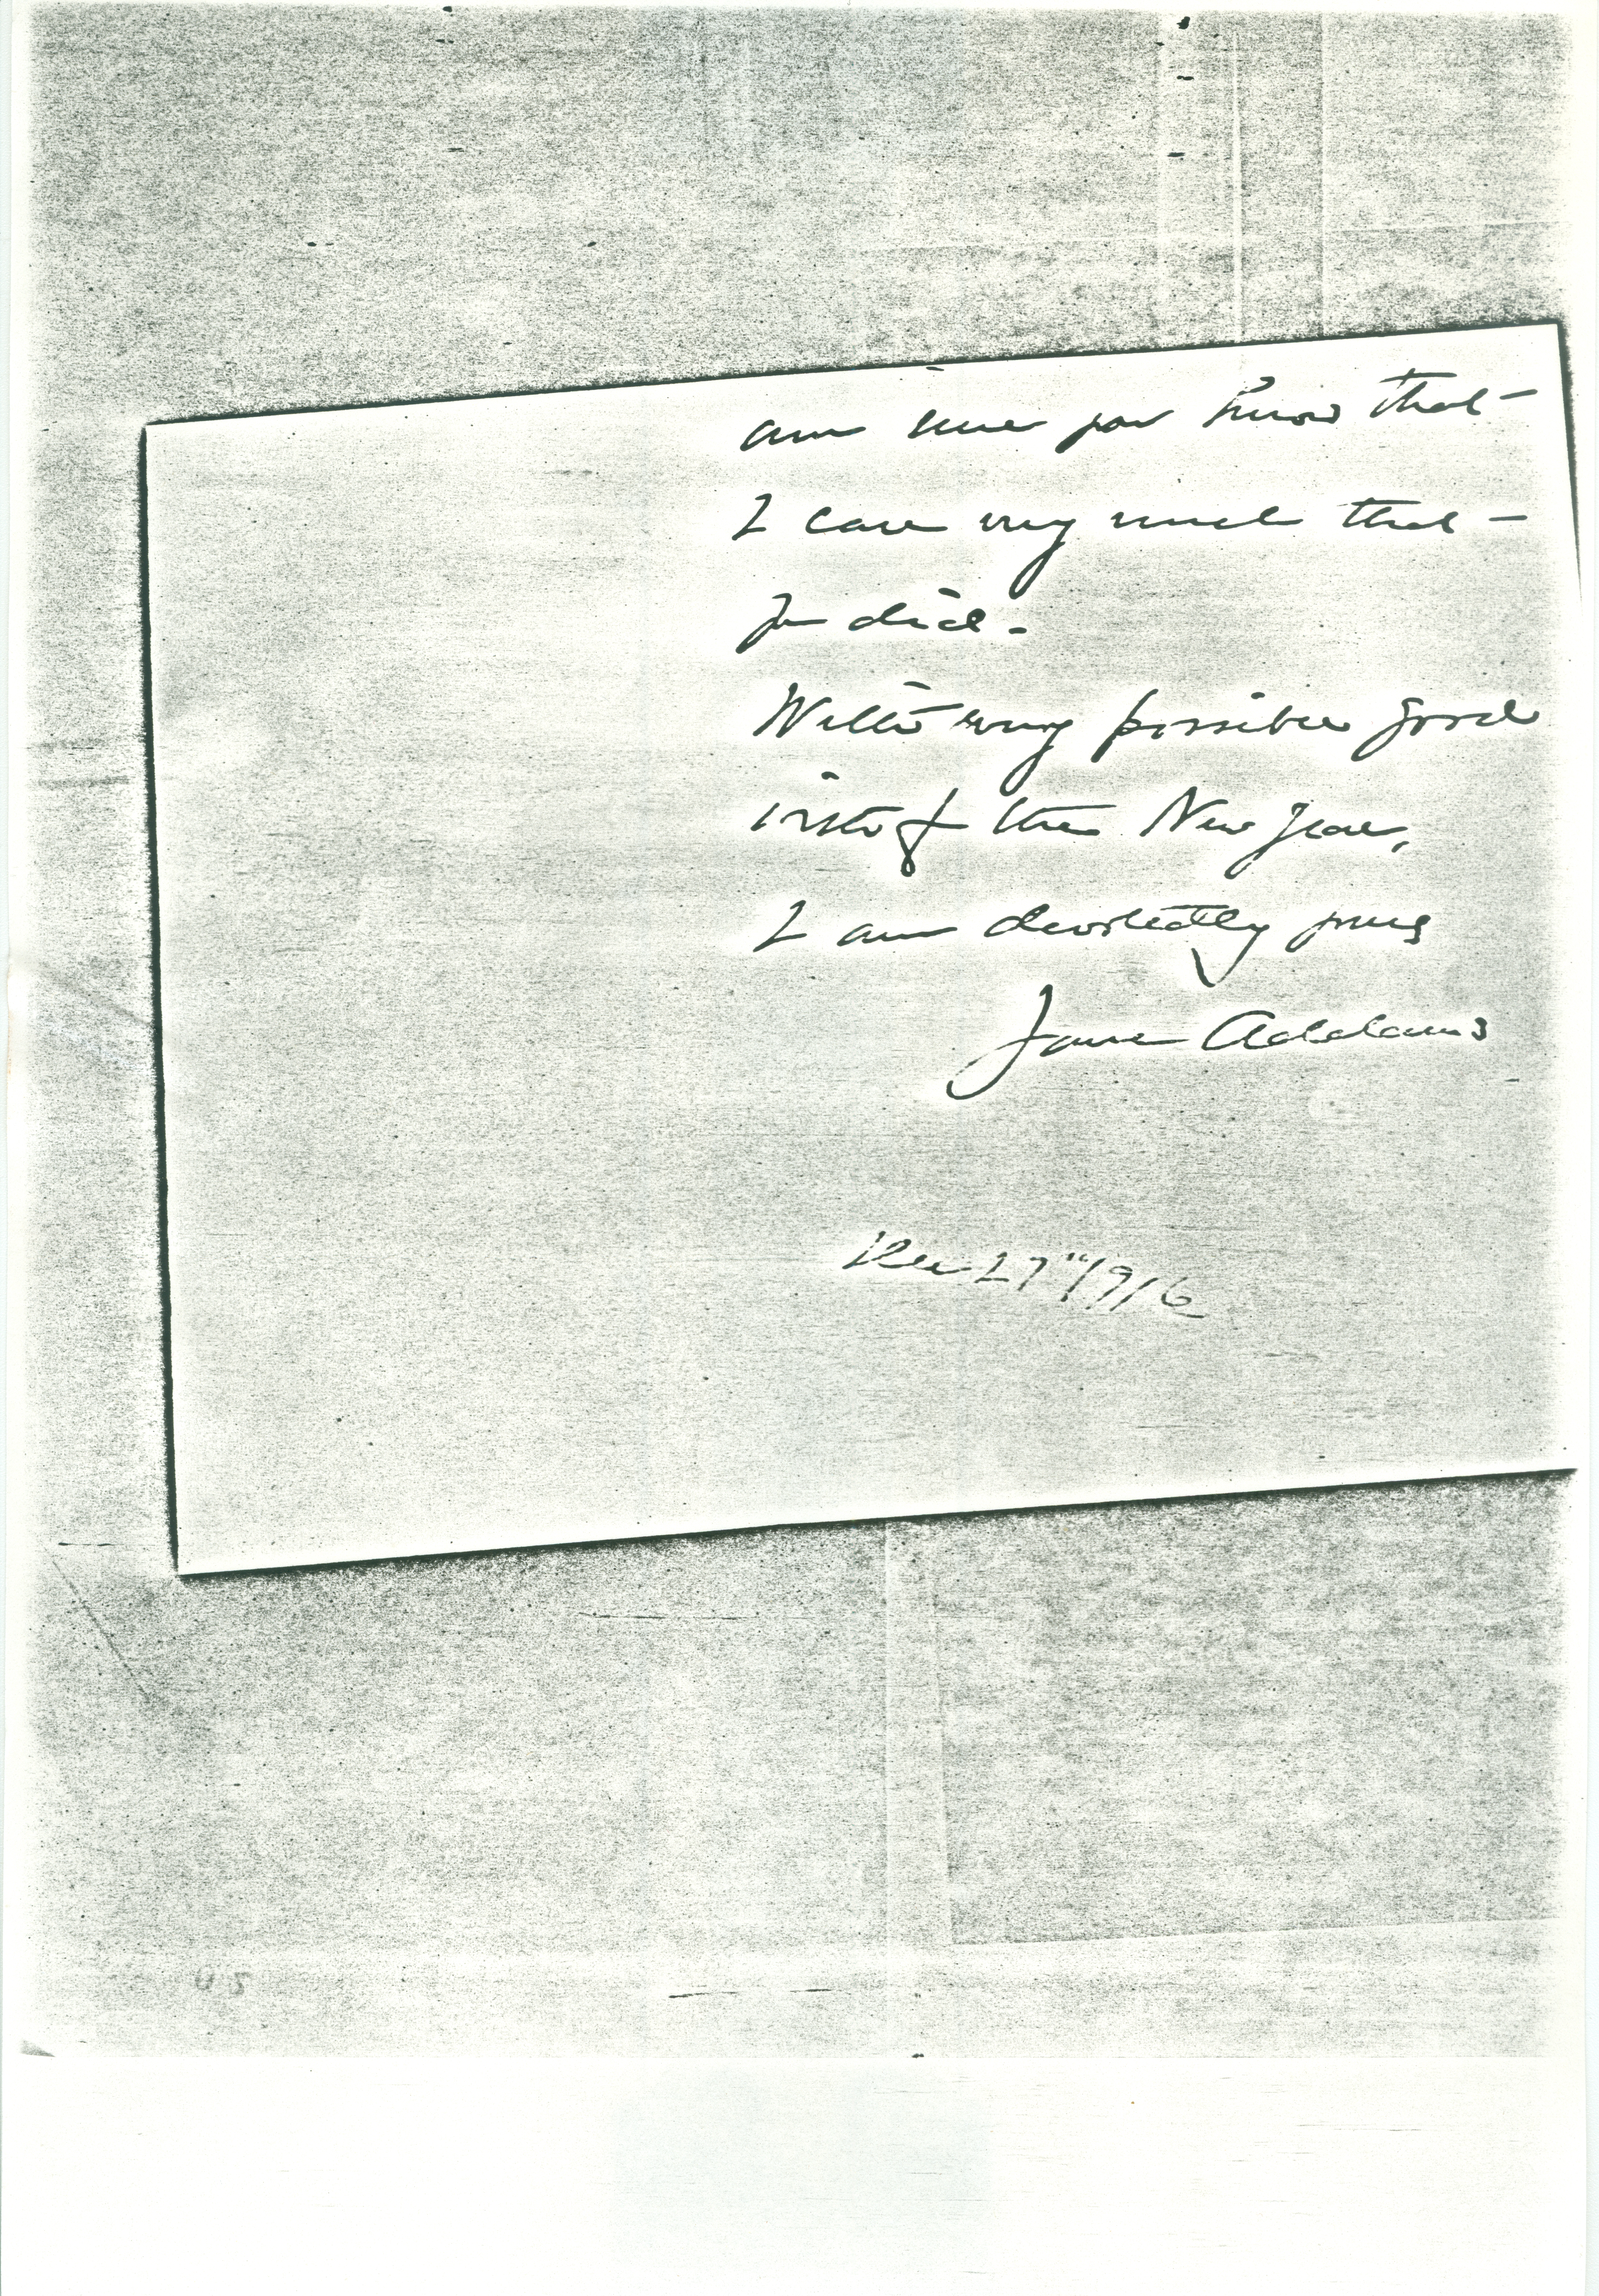 am sure you know that
I care very much that
you did.
With every possible good
wish of the New Year,
I am devotedly yours
Jane Addams
Dec 27" 1916